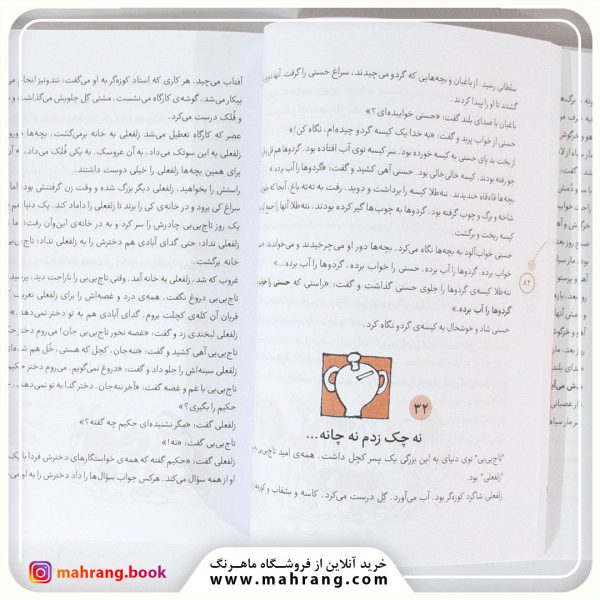 سلطانی رسید. از باغبان و بچه‌هایی که گردو می‌چیدند، سراغ حسنی را گرفت. آنها
گشتند تا او را پیدا کردند.
باغبان با صدای بلند گفت: «حسنی خوابیده‌ای؟»
حسنی از خواب پرید و گفت: «به خدا یک کیسه گردو چیده‌ام، نگاه کن!»
از درخت پای چیدن به کیسه خورده بود. سر کیسه توی آب افتاده بود. گردوها هم
جو رفته بودند. کیسه خالی خالی بود. حسنی آهی کشید و گفت: «گردوها را آب برده.»
بچه‌ها قاه‌قاه خندیدند. ننه‌طلا کیسه را برداشت و دوید. رفت به ته‌ته باغ. آنجا که
شاخه و برگ و چوب گرفته بود. گردوها به چوب‌ها گیر کرده بودند. ننه‌طلا آنها را جمع
کیسه ریخت و برگشت.
حسنی خواب‌آلود به بچه‌ها نگاه می‌کرد. بچه‌ها دور او می‌چرخیدند و می‌خواندند:
خواب برده، گردوها را آب برده. حسنی را خواب برده، گردوها را آب برده...»
ننه‌طلا کیسه‌ی گردوها را جلوی حسنی گذاشت و گفت: «راستی که حسنی را
گردوها را آب برده.»
حسنی شاد و خوشحال به کیسه‌ی گردو نگاه کرد.
۸۲
۳۲
نه چک زدم نه چانه...
"تاج‌بی‌بی" توی دنیای به این بزرگی یک پسر کچل داشت. همه‌ی امید تاج‌بی‌بی
"زلفعلی" بود.
زلفعلی شاگرد کوزه‌گر بود. آب می‌آورد. گِل درست می‌کرد. کاسه و بشقاب و کوزه
آفتاب می‌چید. هر کاری که استاد کوزه‌گر به او می‌گفت: تند و تیز انجام
بیکار می‌شد، گوشه‌ی کارگاه می‌نشست. مشتی گِل جلویش می‌گذاشت و
و قُلّک درست می‌کرد.
عصر که کارگاه تعطیل می‌شد زلفعلی به خانه برمی‌گشت. بچه‌ها
زلفعلی به این سوتک می‌داد، به آن عروسک. به یکی قُلّک می‌داد،
برای همین بچه‌ها زلفعلی را خیلی دوست داشتند.
راستش را بخواهید، زلفعلی دیگر بزرگ شده و وقت زن گرفتنش بود. اما
سراغ کی برود و در خانه‌ی کی را بزند تا زلفعلی را داماد کند. یک دنیا
یک روز تاج‌بی‌بی چادرش را سر کرد و به در خانه‌ی این‌وآن رفت؛ اما
زلفعلی نداد؛ حتی گدای آبادی هم دخترش را به زلفعلی نداد؛ تاج‌بی‌بی
خانه برگشت.
غروب که شد، زلفعلی به خانه آمد. وقتی تاج‌بی‌بی را ناراحت دید، پرسید
تاج‌بی‌بی دروغ نگفت. همه‌ی درد و غصه‌اش را برای زلفعلی تعریف
قربان آن کله‌ی کچلت بروم. گدای آبادی هم به تو دختر نمی‌دهد.»
زلفعلی لبخندی زد و گفت: «غصه نخور تاج‌بی‌بی جان! می‌روم دختر
تاج‌بی‌بی آهی کشید و گفت: «ننه‌جان، کچل که هستی، خُل هم شده‌ای
زلفعلی سینه‌اش را جلو داد و گفت: «دروغ نمی‌گویم. می‌روم دختر
تاج‌بی‌بی با غم و غصه گفت: «آخر ننه‌جان، دختر گدا به تو نمی‌دهند.
حکیم را بگیری؟»
زلفعلی گفت: «مگر نشنیده‌ای حکیم چه گفته؟»
تاج‌بی‌بی گفت: «نه!»
زلفعلی گفت: «حکیم گفته که همه‌ی خواستگارهای دخترش فردا با یک
او از همه سؤال می‌کند. هرکس جواب سؤال‌ها را داد دخترش را به او
mahrang.book
خرید آنلاین از فروشگاه ماهرنگ
www.mahrang.com